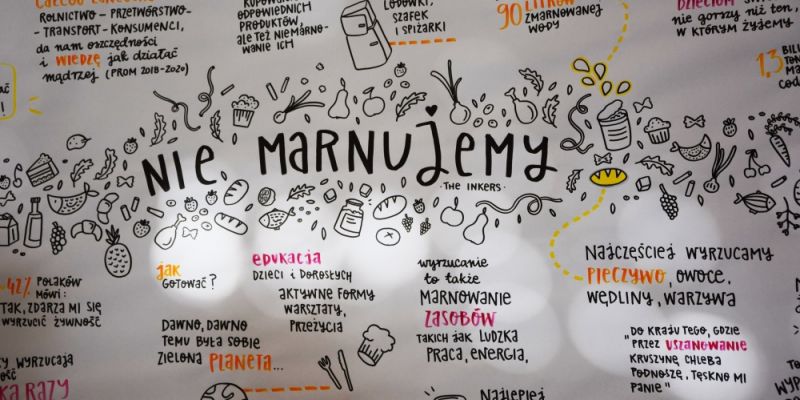 ROLNICTWO - PRZETWÓRSTWO -
- TRANSPORT - KONSUMENCI,
da nam oszczędności
i WIEDZĘ jak działać
mądrzej (PROM 2018-2020)
ODPOWIEDNICH
PRODUKTÓW,
ALE TEŻ NIEMARNO-
WANIE ICH
LODÓWKI,
SZAFEK
I SPIŻARKI
90 LITRÓW
ZMARNOWANEJ
WODY
DZIECIOM
nie gorszy niż ten,
W KTÓRYM ŻYJEMY
1,3
NIE MARNUJEMY
·THE INKERS·
42% POLAKÓW
MÓWI:
TAK, ZDARZA MI SIĘ
WYRZUCIĆ ŻYWNOŚĆ
WYRZUCAJĄ
RAZY
jak
GOTOWAĆ?
DAWNO, DAWNO
TEMU BYŁA SOBIE
ZIELONA PLANETA...
EDUKACJA
DZIECI i DOROSŁYCH
AKTYWNE FORMY
WARSZTATY,
PRZEŻYCIA
wyrzucanie
to także
MARNOWANIE
ZASOBÓW
TAKICH jAK LUDZKA
PRACA, ENERGIA,
NAJLEPIEJ
NAJCZĘŚCIEJ WYRZUCAMY
PIECZYWO, OWOCE,
WĘDLINY, WARZYWA
DO KRAJU TEGO, GDZIE
"PRZEZ USZANOWANIE
KRUSZYNĘ CHLEBA
PODNOSZĘ, TĘSKNO MI
PANIE"